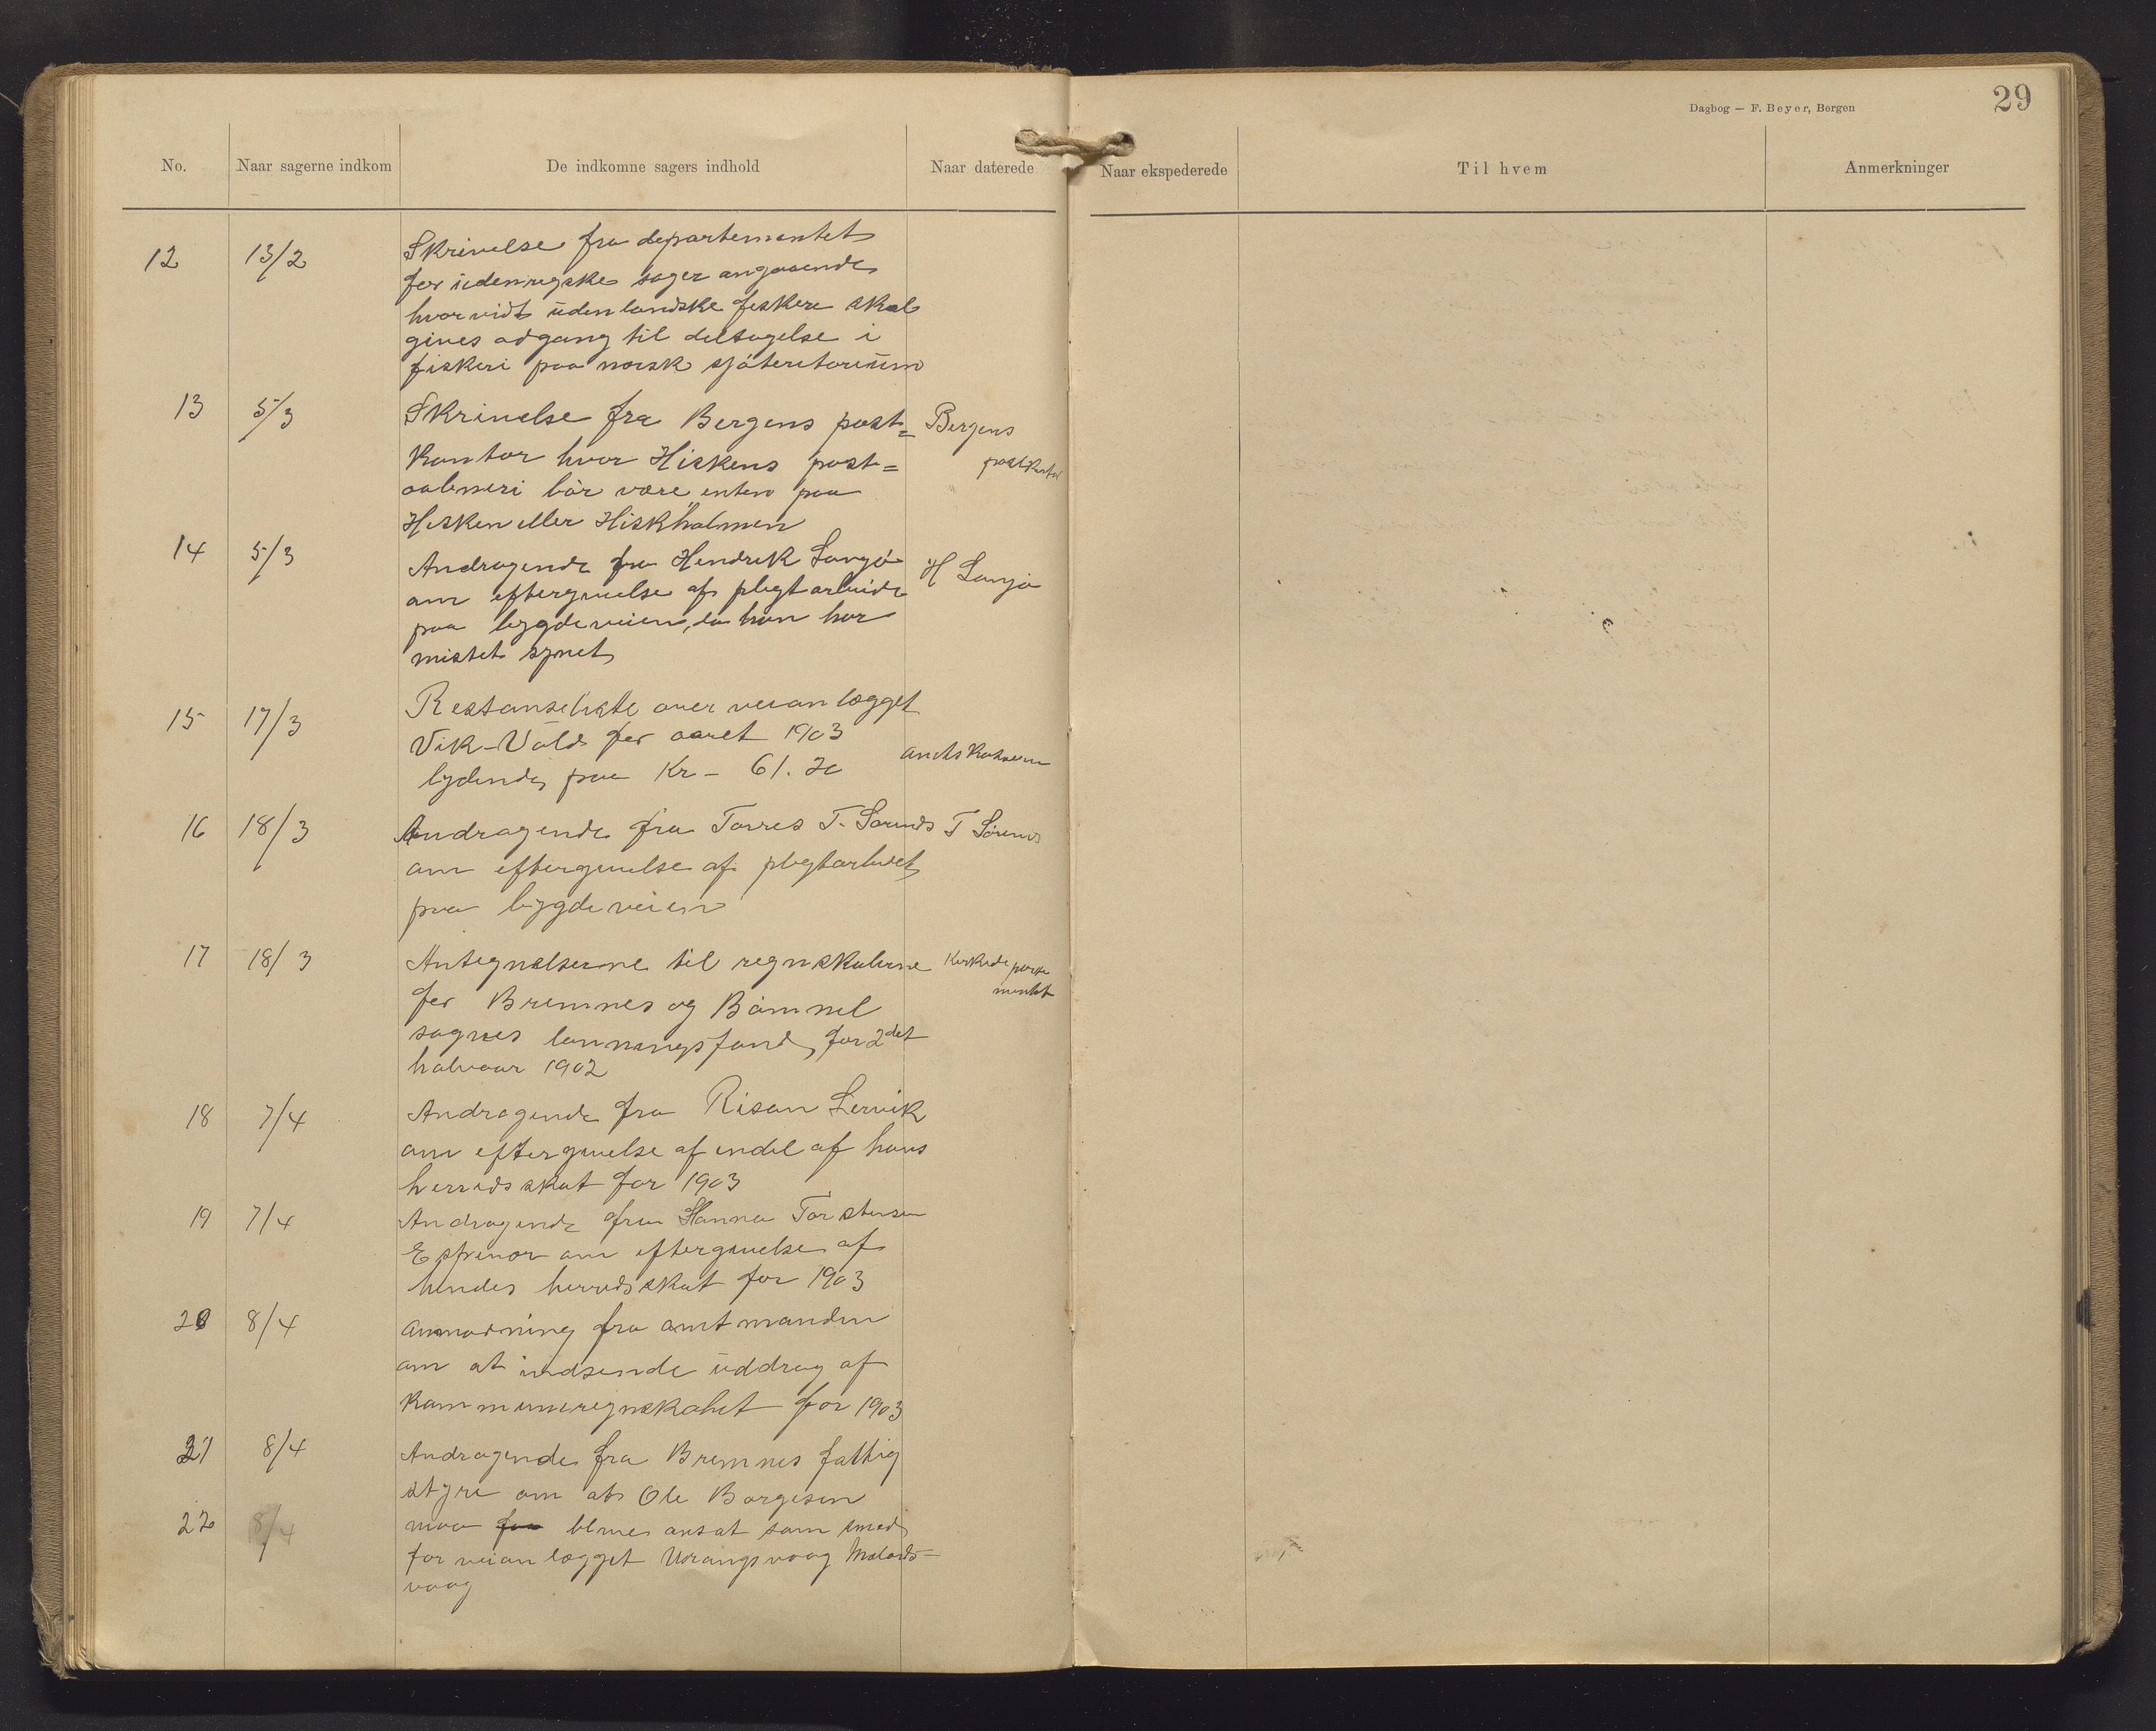 Dagbog — F. Beyer, Bergen
29
No.
Naar sagerne indkom
De indkomne sagers indhold
Naar daterede
Naar ekspederede
Til hvem
Anmerkninger
12 13/2 Skrivelse fra departementet
for udenrigske sager angaaende
hvorvidt udenlandske feskere skal
gives adgang til deltagelse i
fiskeri paa norsk sjøteretorium
13 5/3 Skrivelse fra Bergens post= Bergens
kontor hvor Hiskens post= postkontor
aabneri bør være enten paa
Hisken eller Hiskholmen
14 5/3 Andragende fra Hendrik Langø H Langø
om eftergivelse af pligtarbeide
paa bygdeveien, da han har
mistet synet
15 17/3 Restanseliste over veianlægget
Vik-Vold for aaret 1903
lydende paa Kr - 61.
16 18/3 Andragende fra Torres T. T
om eftergivelse af pligtarbeidet
paa bygdeveien
17 18/3 Antegnelserne til regnskaberne Kirkedeparte
for Bremnes og Bømmel mentet
sognes lønningsfond for 2det
halvaar 1902
18 7/4 Andragende fra Risan Lervik
om eftergivelse af endel af hans
herredsskat for 1903
19 7/4 Andragende fra Hanna Torstensen
Espevær om eftergivelse af
hendes herredsskat for 1903
20 8/4 Anmodning fra amtmanden
om at indsende uddrag af
kommuneregnskabet for 1903
21 8/4 Andragende fra Bremnes fattig
styre om at Ole Borgesen
22 8/4 maa faa blive ansat som smed
for veianlægget Urangsvaag Mælands-
vaag